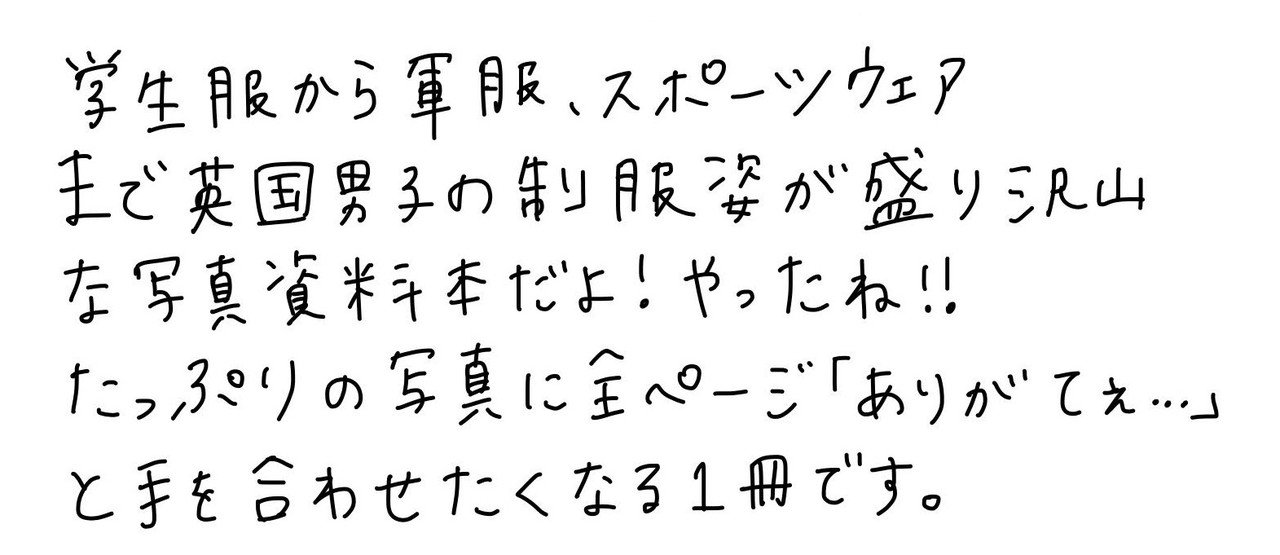 学生服から軍服、スポーツウェア
まで英国男子の制服姿が盛り沢山
な写真資料本だよ!やったね!!
たっぷりの写真に全ページ「ありがてぇ…」
と手を合わせたくなる1冊です。